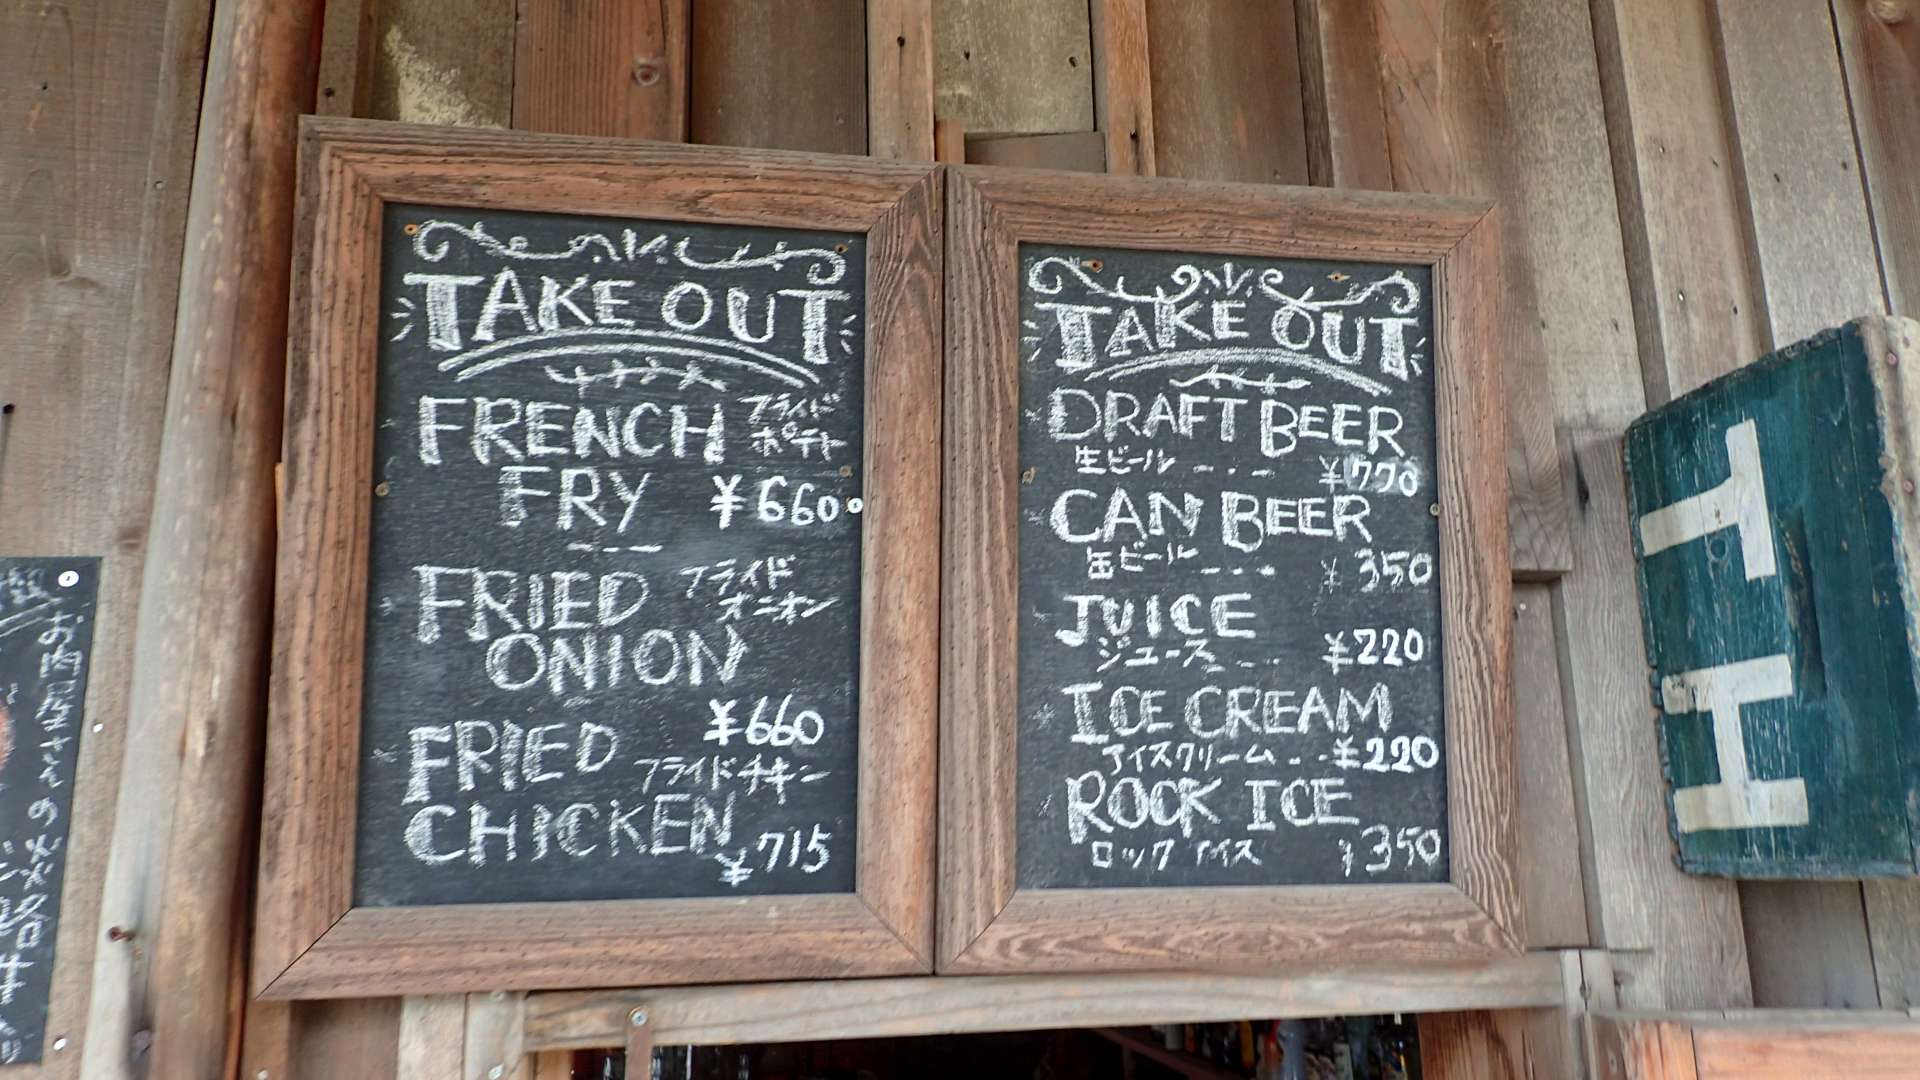 TAKE OUT
FRENCH フライド
ポテト
FRY ¥660
FRIED フライド
オニオン
ONION
¥660
FRIED フライドチキン
CHICKEN
¥715
TAKE OUT
DRAFT BEER
生ビール ---- ¥770
CAN BEER
缶ビール ---- ¥350
JUICE
ジュース ---- ¥220
ICE CREAM
アイスクリーム -- ¥220
ROCK ICE
ロックアイス ¥350
TH